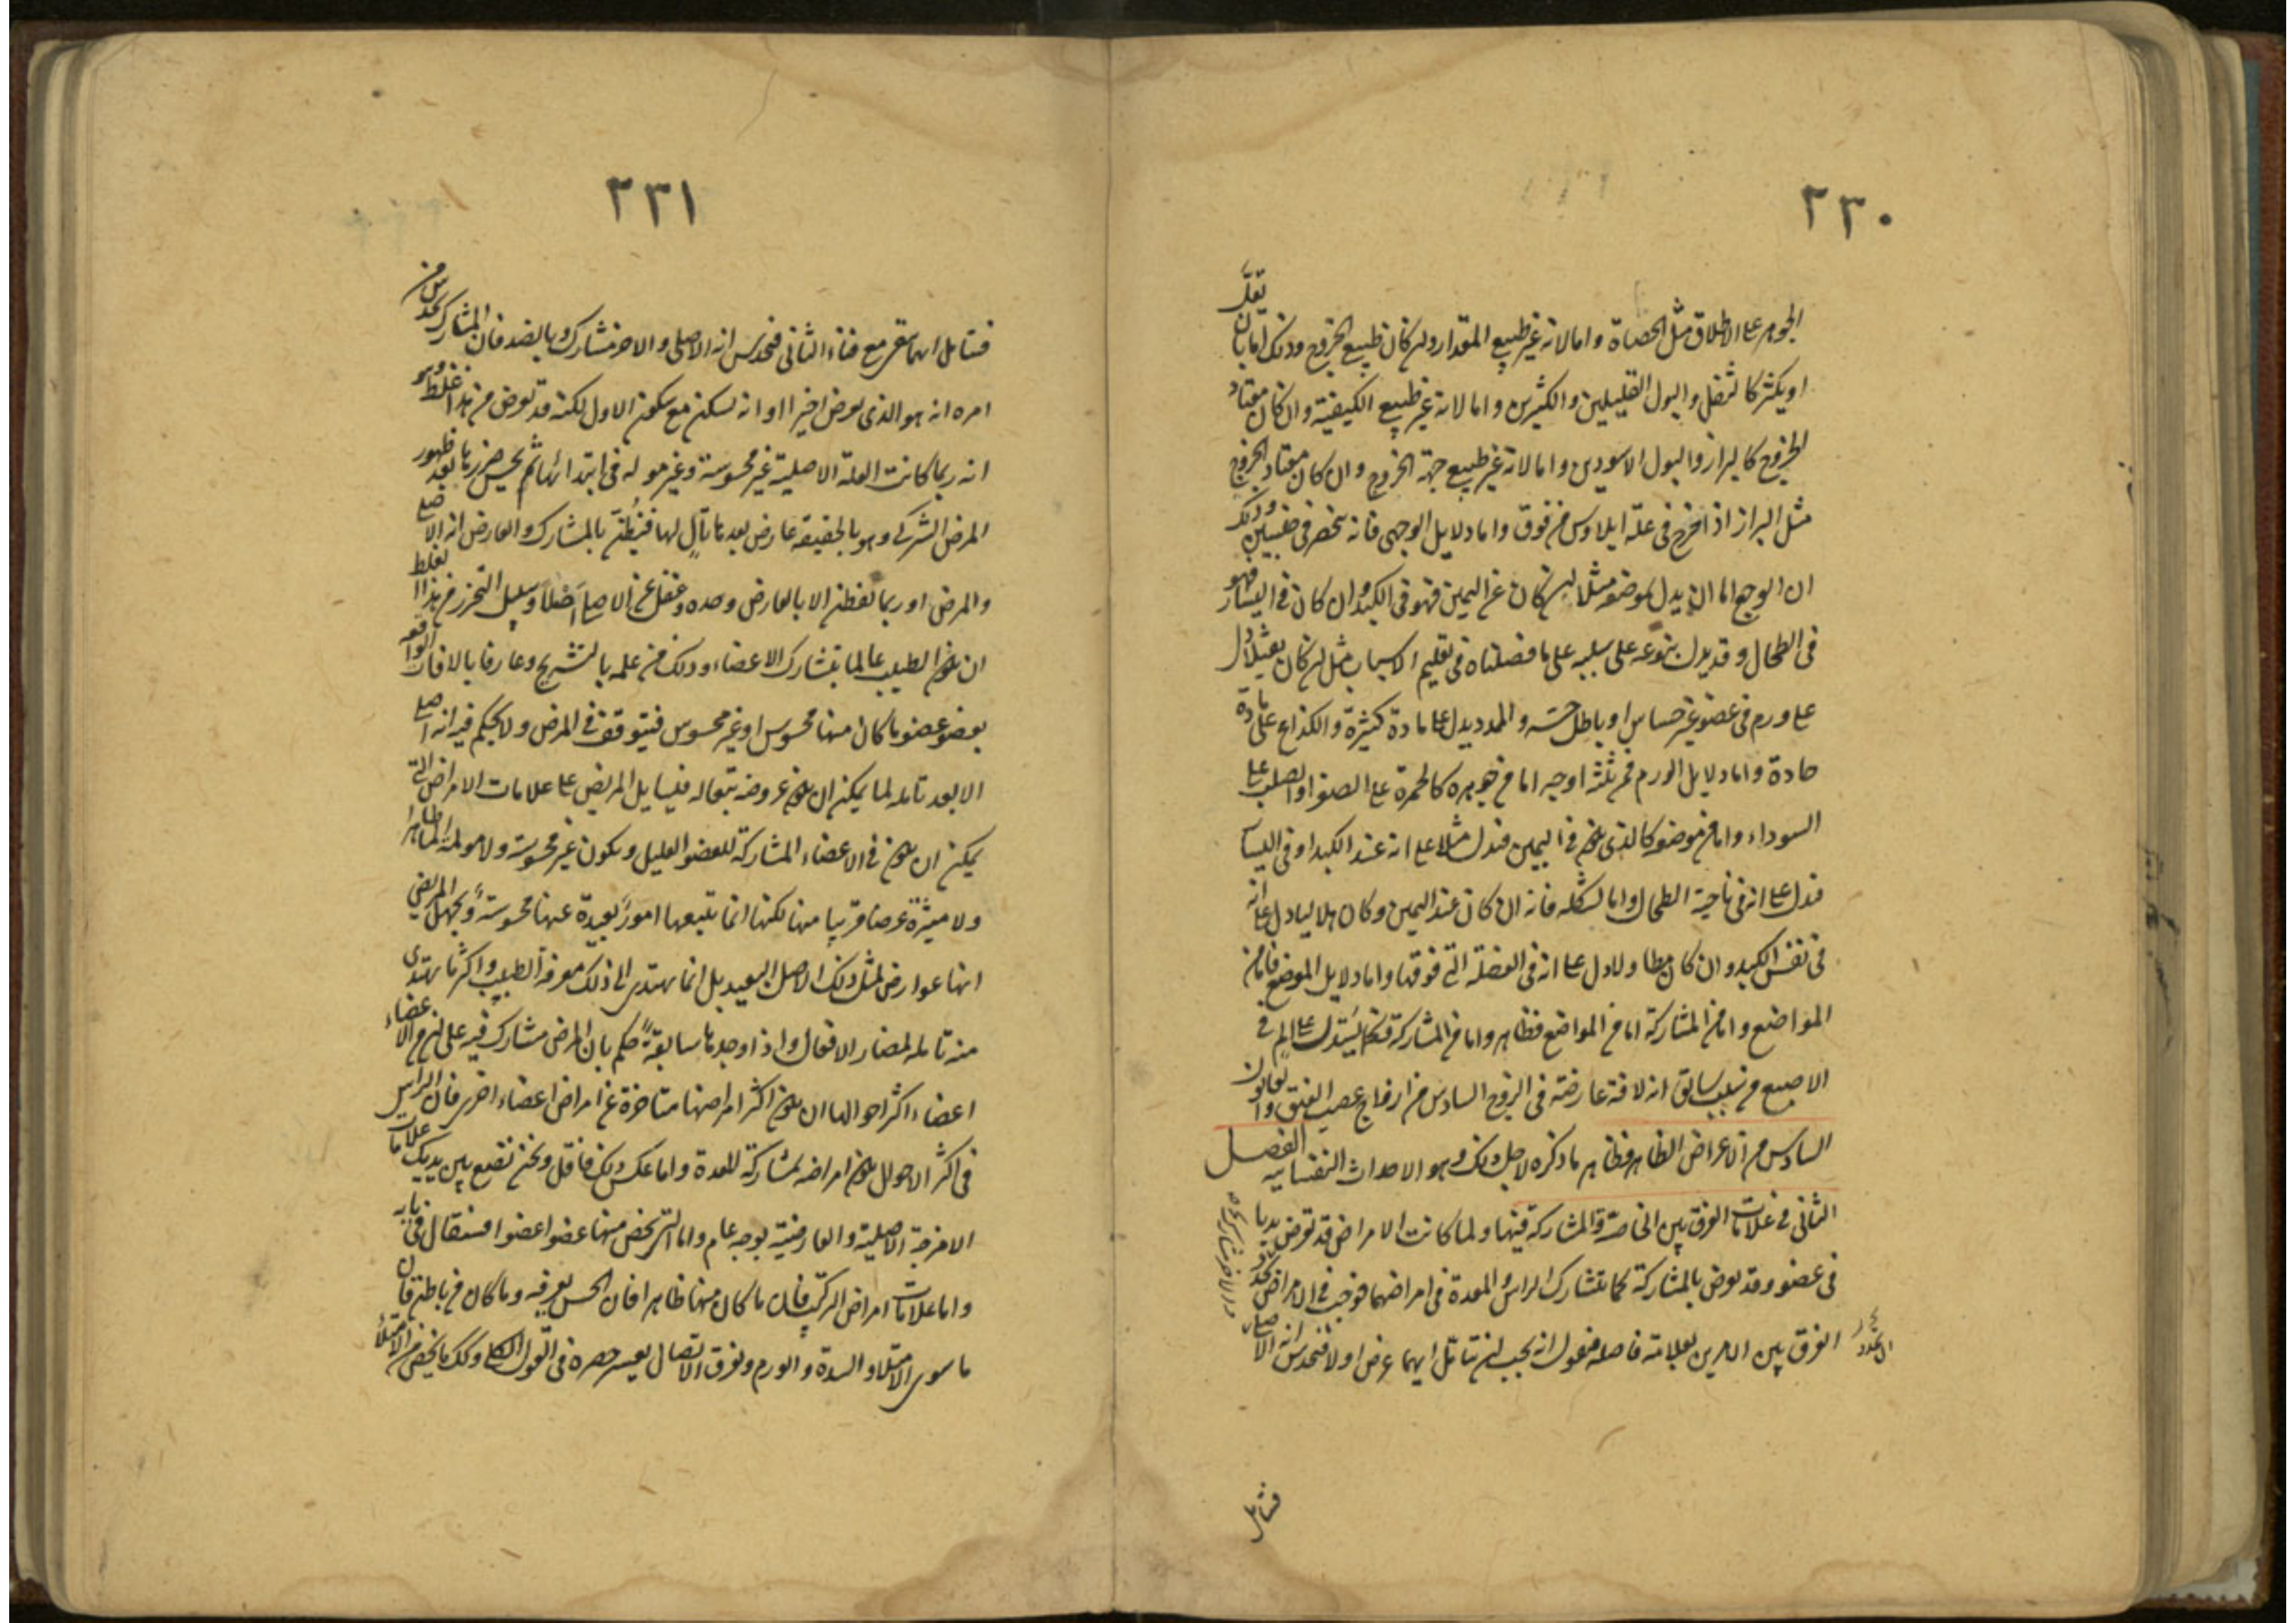 ٢٣٠
الجوهر على الاطلاق مثل الحصاة واما لانه غير طبيعى المقدار وان كان طبيعى الخروج وذلك اما بان يقل
او يكثر كالثفل والبول القليلين والكثيرين واما لانه غير طبيعى الكيفية وان كان معتاد
الخروج كالبراز والبول الاسودين واما لانه غير طبيعى جهة الخروج وان كان معتاد الخروج
مثل البراز اذا خرج فى علة ايلاوس من فوق واما دلايل الوجع فانه ينحصر فى جنسين وذلك
ان الوجع اما ان يدل بموضعه مثلا ان كان عن اليمين فهو فى الكبد وان كان فى اليسار فهو
فى الطحال وقد يدل بنوعه على سببه على ما فصلناه فى تعليم الاسباب مثل ان كان ثقيلا دل
على ورم فى عضو غير حساس او باطل حسه والممدد يدل على مادة كثيرة واللذاع على مادة
حادة واما دلايل الورم فمن ثلثه اوجه اما من جوهره كالحمرة على الصفرا والصلب على
السوداء واما من موضعه كالذى يكون فى اليمين فيدل مثلا على انه عند الكبد او فى اليسار
فيدل على انه فى ناحية الطحال واما لشكله فانه ان كان عند اليمين وكان هلاليا دل على انه
فى نفس الكبد وان كان مطاولا دل على انه فى العضلة التى فوقها واما دلايل الموضع فاما من
المواضع واما من المشاركة اما من المواضع فظاهر واما من المشاركة فكما يستدل على الم فى
الاصبع من سبب سابق انه لافة عارضة فى الزوج السادس من ازواج عصب العنق والقانون
السادس من الاعراض الظاهره فظاهر ما ذكره لاجل ذلك وهو الاحداث النفسانيه الفصل
الثانى فى علامات الفرق بين الخاصة والمشاركة فيها ولما كانت الامراض قد تعرض بديا
فى عضو وقد تعرض بالمشاركة كما يتشارك الراس والمعدة فى امراضهما فوجب فى الامراض
الفرق بين الامرين بعلامة فاصله فنقول انه يجب ان تتامل ايهما عرض اولا فتحدس انه الاصلى
فتامل
٢٣١
فتامل ايهما يبقى مع فناء الثانى فتحدس انه الاصلى والاخر مشارك وبالضد فان المشارك تحدس من
امره انه هو الذى يعرض اخيرا او انه يسكن مع سكون الاول لكنه قد تعرض من هذا غلط وهو
انه ربما كانت العلة الاصلية غير محسوسة وغير مولمه فى ابتدائها ثم يحس ضررها بعد ظهور
المرض الشركى وهو بالحقيقة عارض بعدها تال لها فيظن بالمشارك والعارض انه الاصلى
والمرض او ربما لم يفطن الا بالعارض وحده وغفل عن الاصلى اصلا وسبيل التحرز من هذا الغلط
ان يكون الطبيب عالما بتشارك الاعضاء وذلك من علمه بالتشريح وعارفا بالافات الواقعه
بعضو عضو ما كان منها محسوس او غير محسوس فيتوقف فى المرض ولا يحكم فيه انه اصلى
الا بعد تامله لما يمكن ان يكون عروضه تبعا له فيسايل المريض على علامات الامراض التى
يمكن ان يكون فى الاعضاء المشاركة للعضو العليل ويكون غير محسوسة ولا مولمة الما ظاهرا
ولا ميثرة عرضا قريبا منها لكنها انما يتبعها امور بعيدة عنها محسوسة ويجهل المريض
انها عوارض لمثل ذلك الاصل البعيد بل انما يهتدى الى ذلك معرفة الطبيب واكثر ما يهتدى
منه تامله لمضار الافعال واذا وجدها سابقة حكم بان المرض مشارك فيه على ان من الاعضاء
اعضاء اكثر احوالها ان يكون اكثر امراضها متاخرة عن امراض اعضاء اخرى فان الراس
فى اكثر الاحوال يكون امراضه بمشاركة المعدة واما عكس ذلك فاقل ونحن نضع بين يديك علامات
الامزجة الاصلية والعارضية بوجه عام واما التى يخص منها عضوا عضوا فسنقال فى بابه
واما علامات امراض التركيب فان ما كان منها ظاهرا فان الحس يعرفه وما كان من باطن فان
ما سوى الامتلا والسدة والورم وتفرق الاتصال يعسر حصره فى القول الكلى وكذلك ما يخص من الامتلا